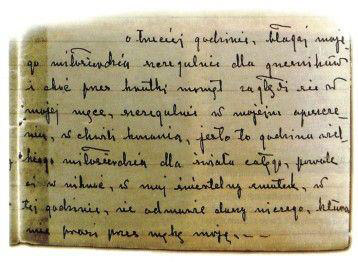 o trzeciej godzinie, błagaj moje-
go miłosierdzia szczególnie dla grzeszników
i choć przez krutki moment zagłębi się w
mojej męce, szczególnie w mojem opuszcze-
niu, w chwili konania, jest to godzina wiel-
kiego miłosierdzia dla świata całego, pozwolę
ci wniknąć, w mój śmiertelny smutek, w
tej godzinie, nie odmówię duszy niczego, która
mnie prosi przez mękę moję, – –